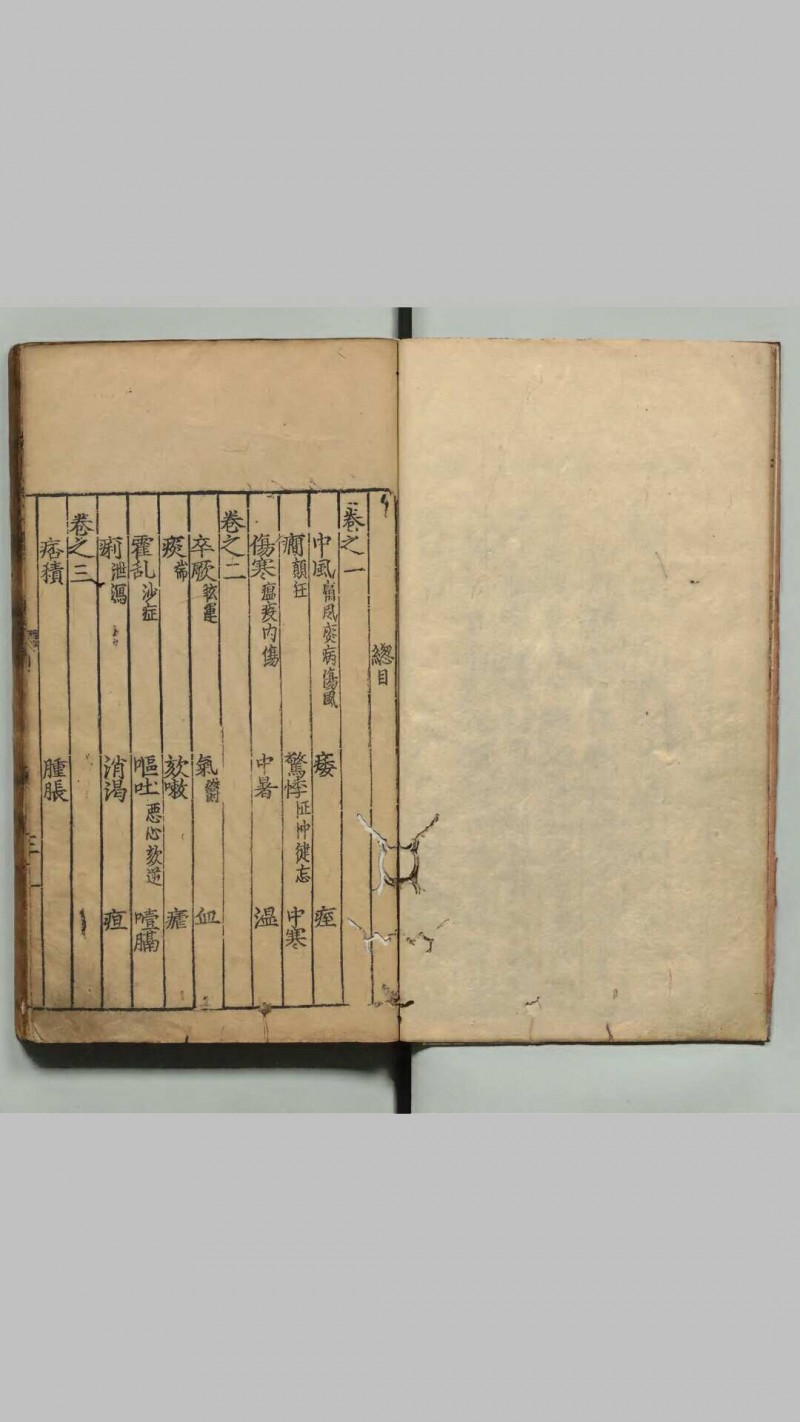 總目
卷之一
中風 癘風 痰病 傷風 痿 痓
癎 顛狂 驚悸 怔忡健忘 中寒
傷寒 瘟疫內傷 中暑 溫
卷之二
卒厥 眩運 氣 血
痰 喘 欬嗽 瘧
霍乱 沙症 嘔吐 惡心欬逆 噎膈
痢 泄瀉 消渴 疸
卷之三
痞積 腫脹